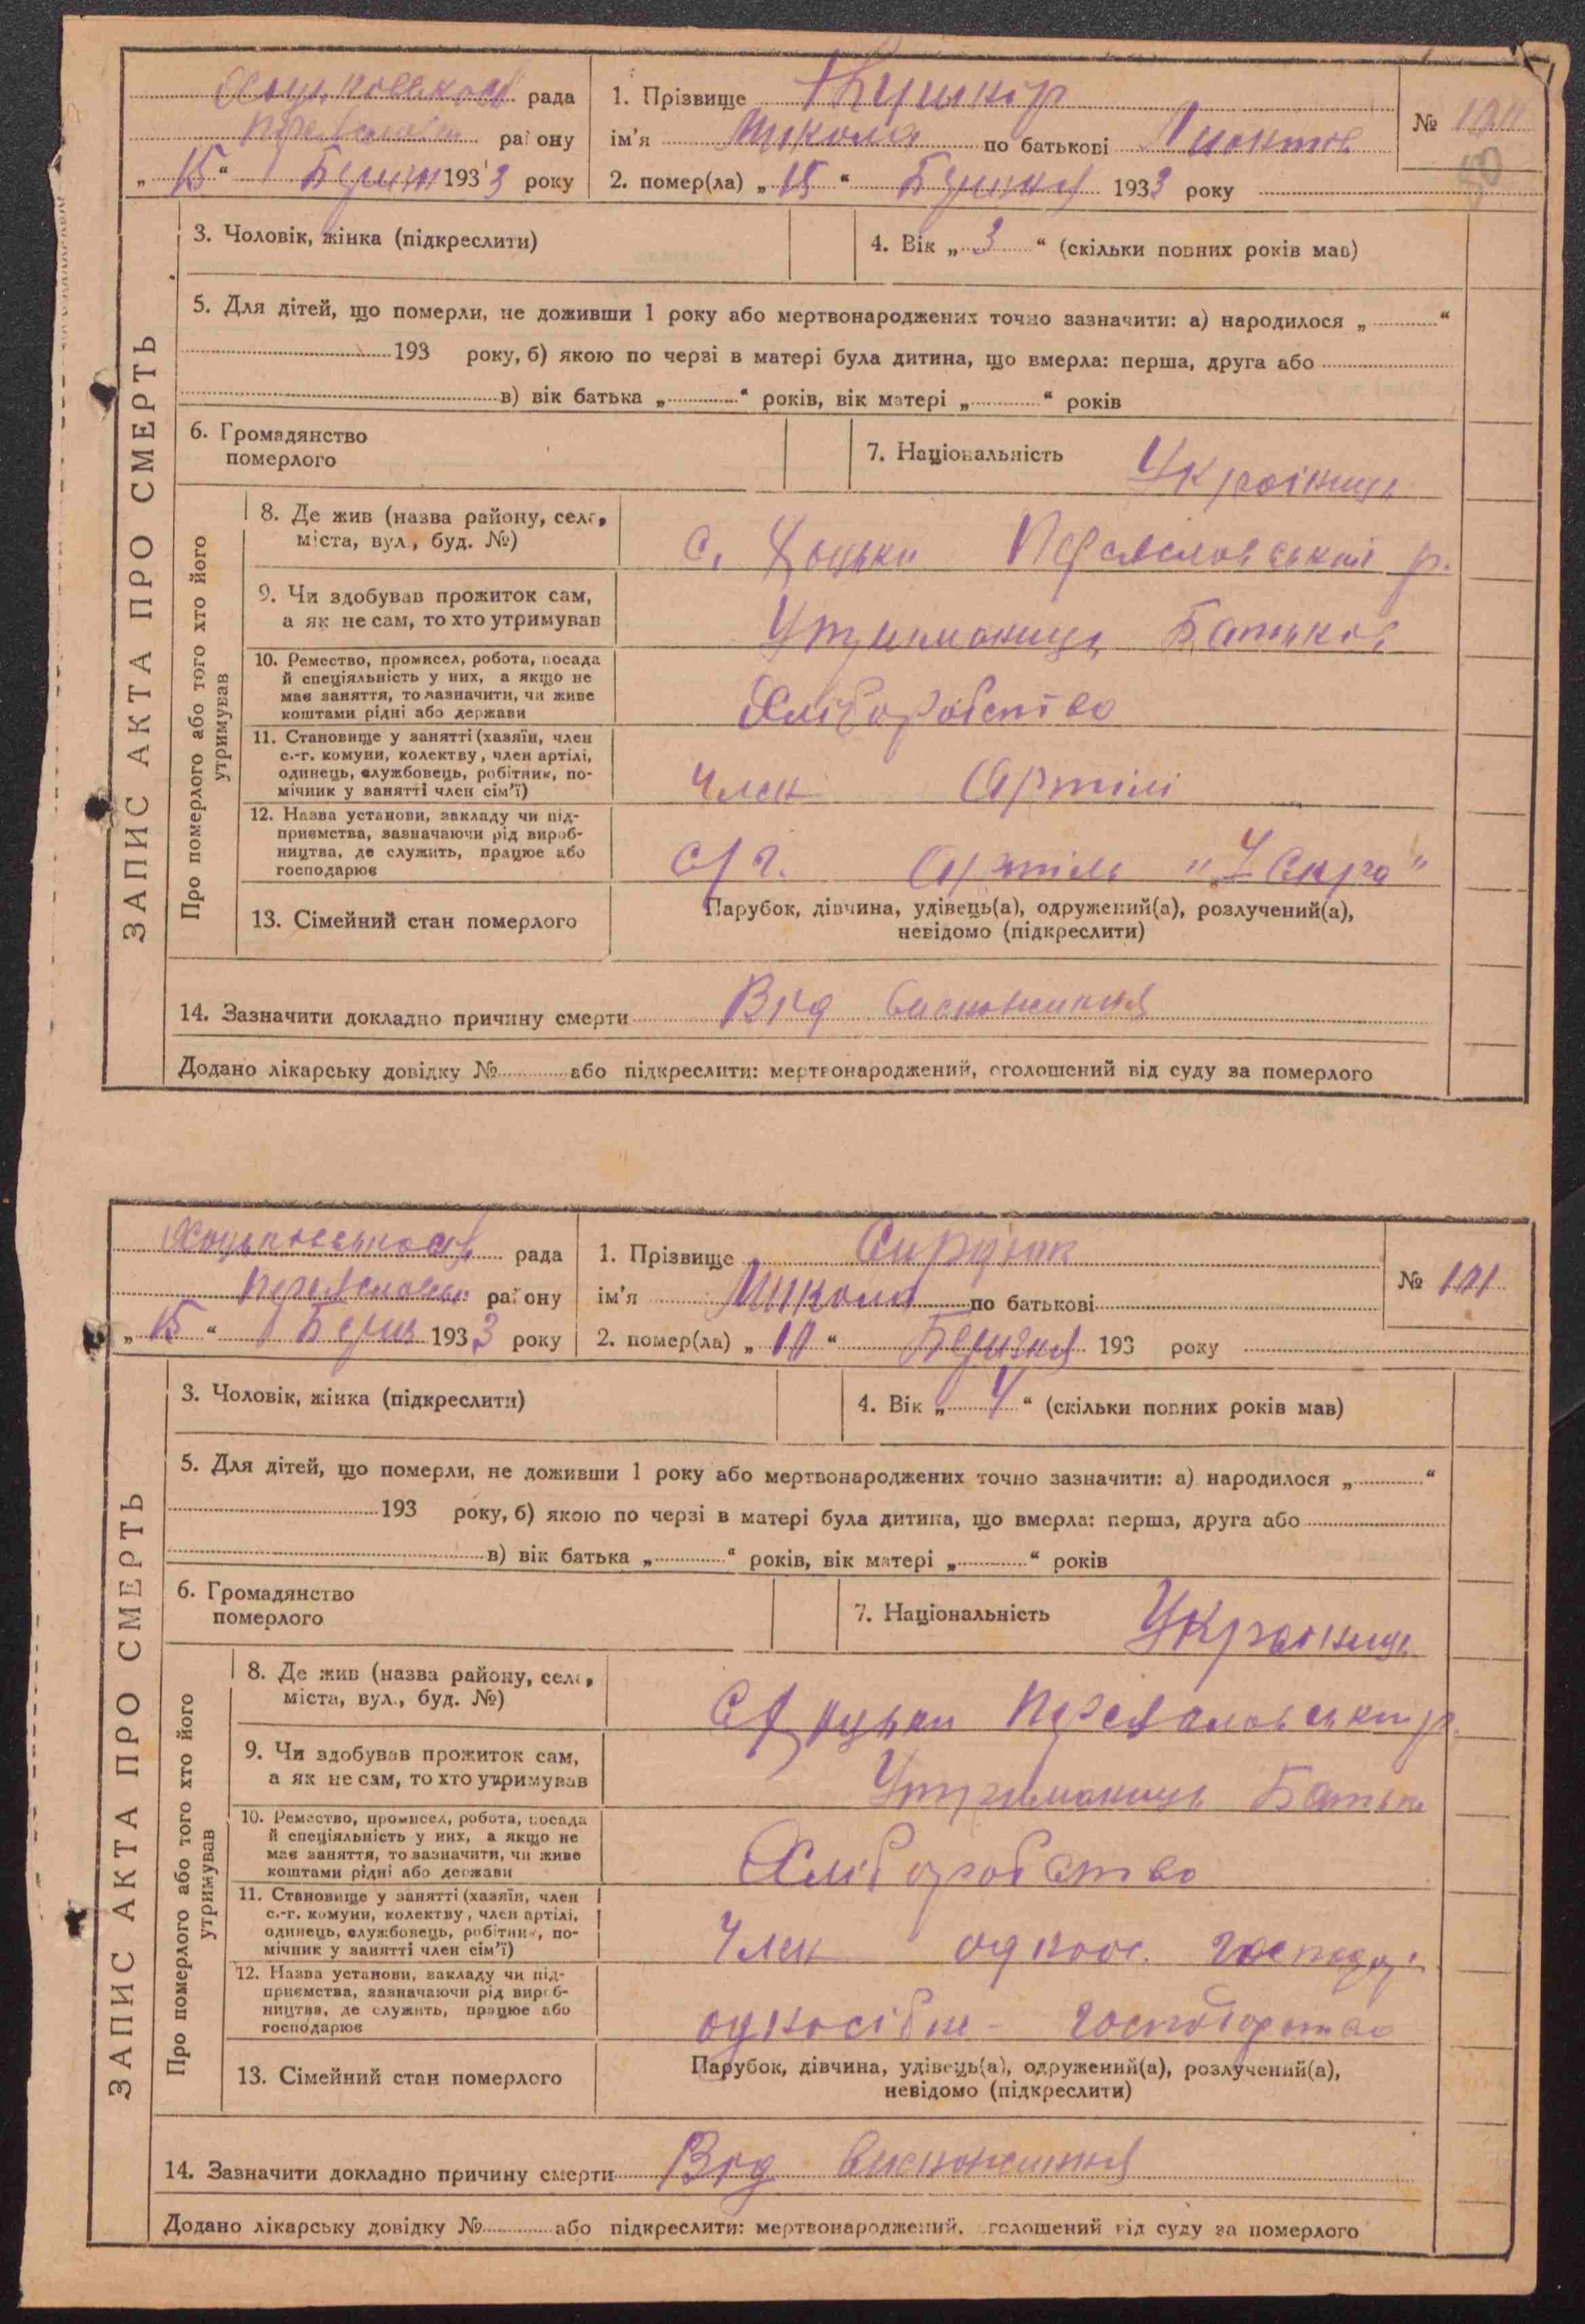 рада
району
„ 15 “ 1933 року
1. Прізвище Кушнір
ім'я Микола по батькові
2. помер(ла) „ 15 “ 1933 року
№
ЗАПИС АКТА ПРО СМЕРТЬ
3. Чоловік, жінка (підкреслити)
4. Вік „ 3 “ (скільки повних років мав)
5. Для дітей, що померли, не доживши 1 року або мертвонароджених точно зазначити: а) народилося „ “
193 року, б) якою по черзі в матері була дитина, що вмерла: перша, друга або
в) вік батька „ “ років, вік матері „ “ років
6. Громадянство
померлого
7. Національність Українець
Про померлого або того хто його
утримував
8. Де жив (назва району, села,
міста, вул., буд. №)
с. Хоцьки р.
9. Чи здобував прожиток сам,
а як не сам, то хто утримував
Утриманець
10. Ремество, промисел, робота, посада
й спеціяльність у них, а якщо не
має заняття, то зазначити, чи живе
коштами рідні або держави
Хліборобство
11. Становище у занятті (хазяїн, член
с.-г. комуни, колектву, член артілі,
одинець, службовець, робітник, по-
мічник у занятті член сім'ї)
Член Артілі
12. Назва установи, закладу чи під-
приємства, зазначаючи рід вироб-
ництва, де служить, працює або
господарює
с/г. Артіль
13. Сімейний стан померлого
Парубок, дівчина, удівець(а), одружений(а), розлучений(а),
невідомо (підкреслити)
14. Зазначити докладно причину смерти Від виснаження
Додано лікарську довідку № або підкреслити: мертвонароджений, оголошений від суду за померлого
рада
району
„ 15 “ 1933 року
1. Прізвище Сирдюк
ім'я Микола по батькові
2. помер(ла) „ 10 “ Березня 193 року
№ 101
ЗАПИС АКТА ПРО СМЕРТЬ
3. Чоловік, жінка (підкреслити)
4. Вік „ 4 “ (скільки повних років мав)
5. Для дітей, що померли, не доживши 1 року або мертвонароджених точно зазначити: а) народилося „ “
193 року, б) якою по черзі в матері була дитина, що вмерла: перша, друга або
в) вік батька „ “ років, вік матері „ “ років
6. Громадянство
померлого
7. Національність Українець
Про померлого або того хто його
утримував
8. Де жив (назва району, села,
міста, вул., буд. №)
с. Хоцьки р.
9. Чи здобував прожиток сам,
а як не сам, то хто утримував
Утриманець Батька
10. Ремество, промисел, робота, посада
й спеціяльність у них, а якщо не
має заняття, то зазначити, чи живе
коштами рідні або держави
Хліборобство
11. Становище у занятті (хазяїн, член
с.-г. комуни, колектву, член артілі,
одинець, службовець, робітник, по-
мічник у занятті член сім'ї)
Член
12. Назва установи, закладу чи під-
приємства, зазначаючи рід вироб-
ництва, де служить, працює або
господарює
13. Сімейний стан померлого
Парубок, дівчина, удівець(а), одружений(а), розлучений(а),
невідомо (підкреслити)
14. Зазначити докладно причину смерти Від виснаження
Додано лікарську довідку № або підкреслити: мертвонароджений, оголошений від суду за померлого